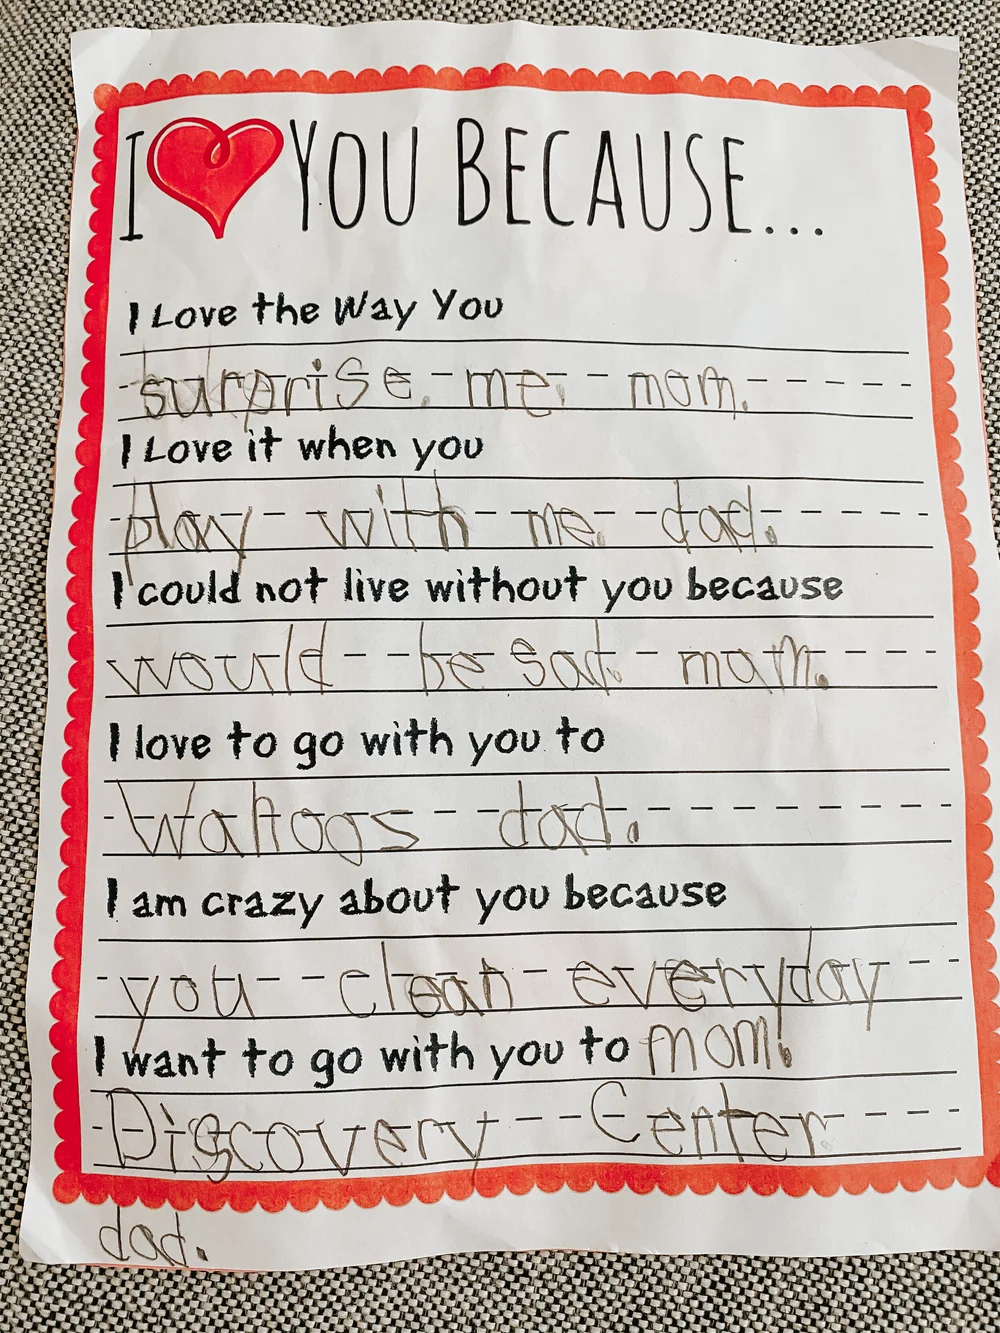 I ❤ YOU BECAUSE...
I Love the Way You
surprise. me. mom.
I Love it when you
play with me. dad.
I could not live without you because
would be sad. mom.
I love to go with you to
Wahoos dad.
I am crazy about you because
you clean everyday
I want to go with you to mom!
Discovery Center
dad.